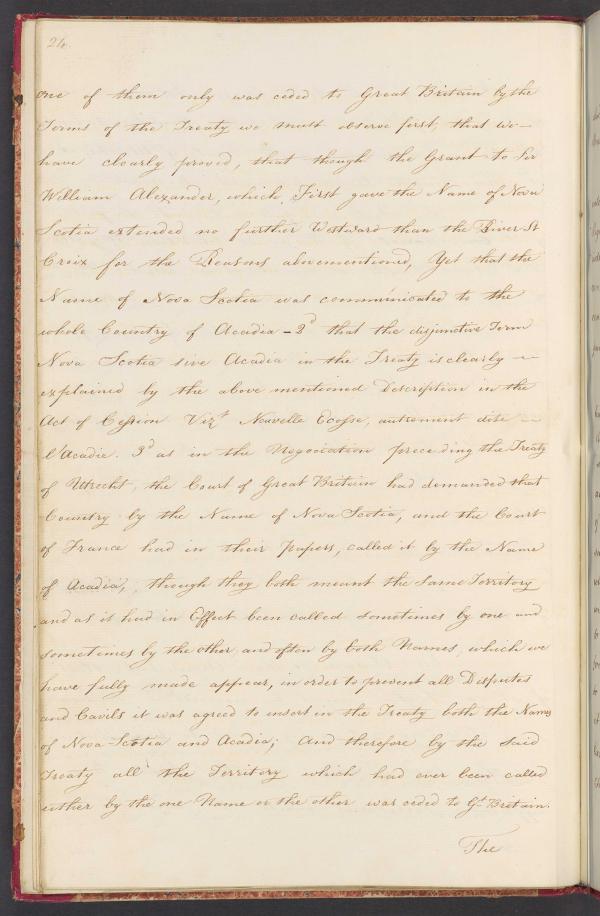 24
one of them only was ceded to Great Britain by the
Terms of the Treaty we must observe first, that we
have clearly proved, that though the Grant to Sir
William Alexander, which First gave the Name of Nova
Scotia extended no further Westward than the River St
Croix for the Reasons abovementioned, Yet that the
Name of Nova Scotia was communicated to the
whole Country of Acadia - 2d that the disjunctive Term
Nova Scotia sive Acadia in the Treaty is clearly
explained by the above mentioned Description in the
Act of Cession Vizt Nouvelle Ecosse, autrement dite
l'Acadie. 3d as in the Negociation preceding the Treaty
of Utrecht, the Court of Great Britain had demanded that
Country by the Name of Nova Scotia, and the Court
of France had in their papers, called it by the Name
of Acadia, though they both meant the Same Territory
and as it had in Effect been called sometimes by one and
sometimes by the other and often by both Names, which we
have fully made appear, in order to prevent all Disputes
and Cavils it was agreed to insert in the Treaty both the Names
of Nova Scotia and Acadia; And therefore by the said
Treaty all the Territory which had ever been called
either by the one Name or the other was ceded to Gt Britain.
The